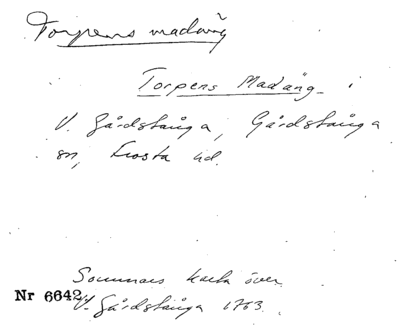 Torpens madäng
Torpens Madäng i
V. Gårdstånga, Gårdstånga
sn, Frosta hd.
Sommars karta över
Nr 6642 V. Gårdstånga 1763.